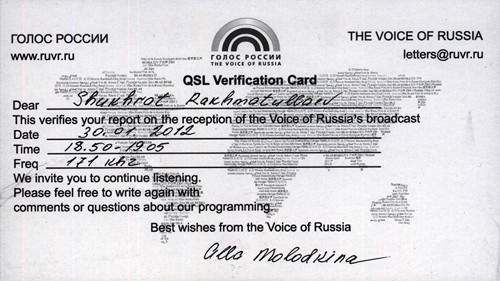 ГОЛОС РОССИИ
www.ruvr.ru
ГОЛОС РОССИИ
THE VOICE OF RUSSIA
THE VOICE OF RUSSIA
letters@ruvr.ru
QSL Verification Card
Dear Shukhrat Rakhmatullaev
This verifies your report on the reception of the Voice of Russia's broadcast
Date 30.01 2012
Time 18.50-19.05
Freq 171 khz
We invite you to continue listening.
Please feel free to write again with
comments or questions about our programming.
Best wishes from the Voice of Russia
Alla Molodkina